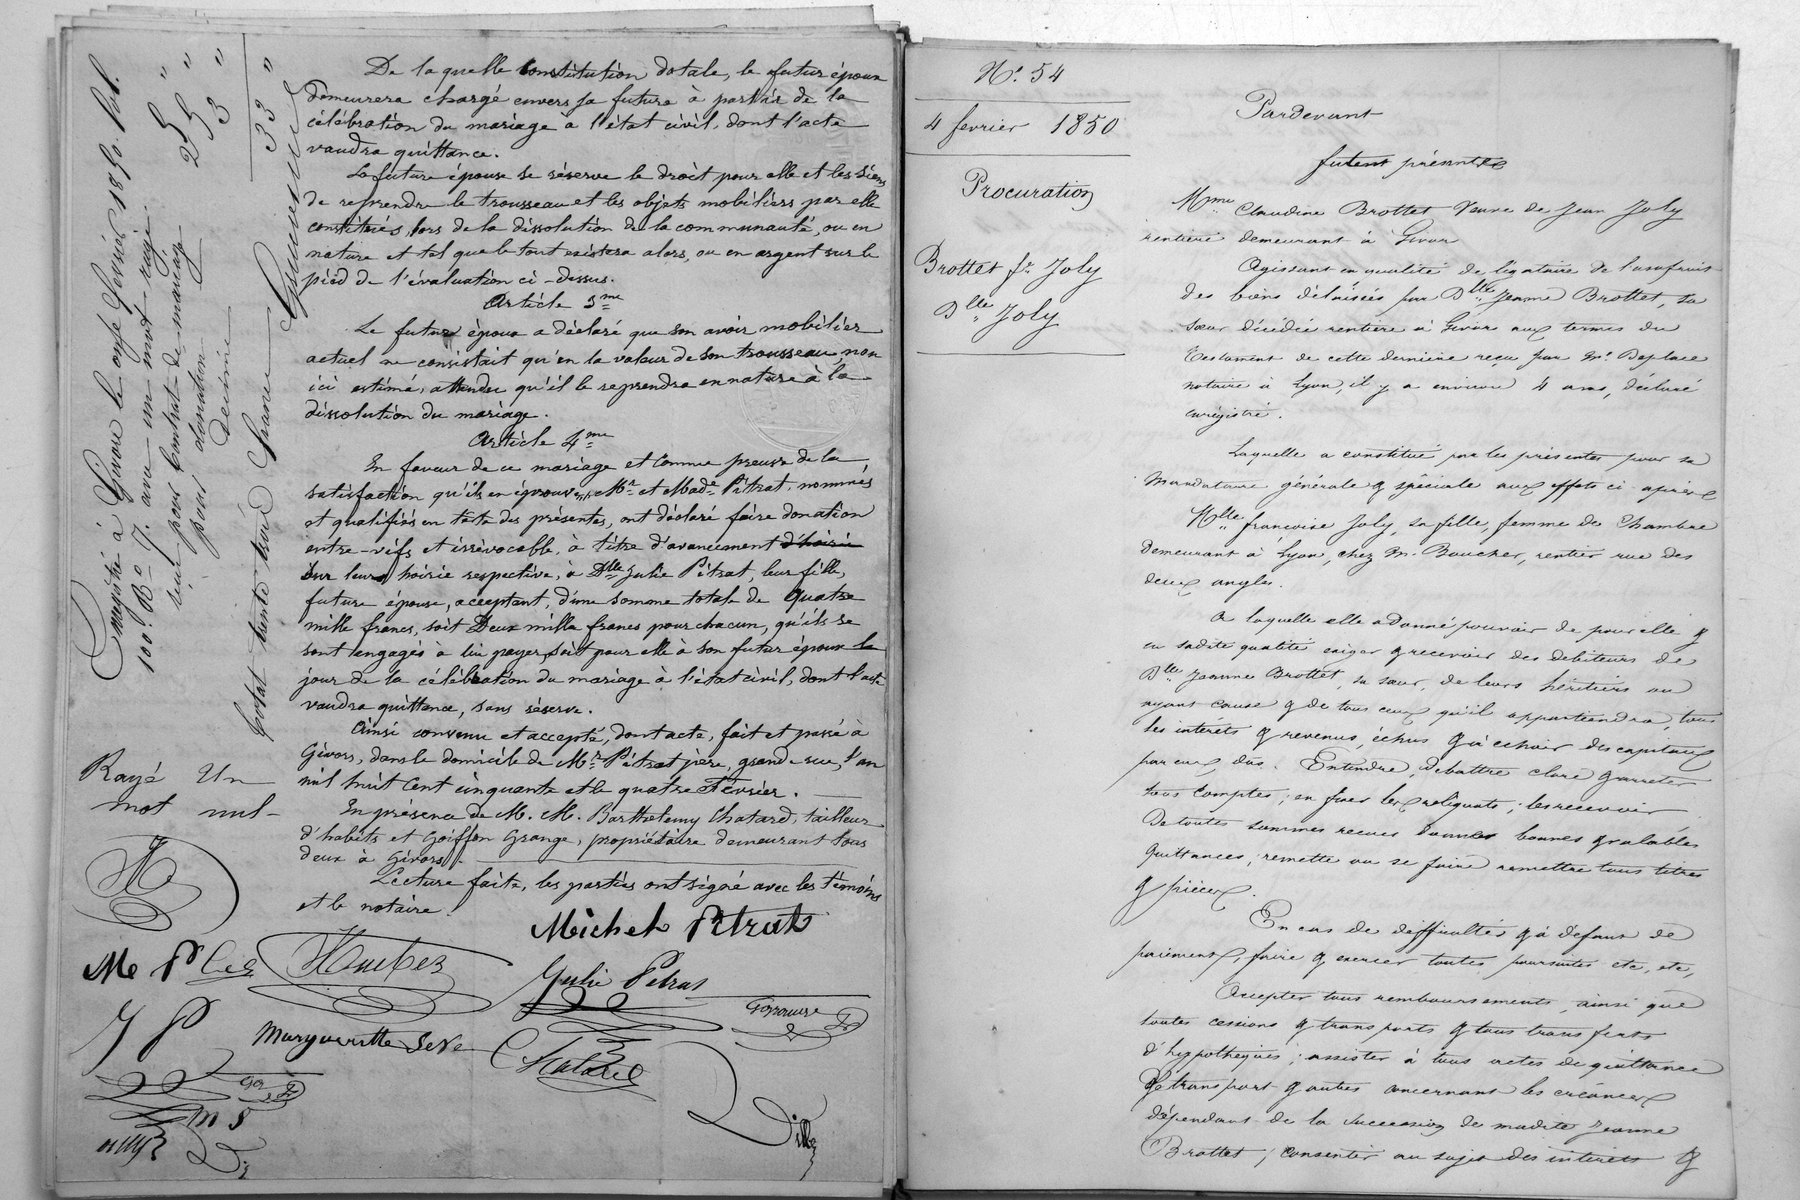 De laquelle constitution dotale, le futur époux
demeurera chargé envers sa future à partir de la
célébration du mariage à l'état civil, dont l'acte
vaudra quittance.
La future épouse se réserve le droit pour elle et les siens
de reprendre le trousseau et les objets mobiliers par elle
constitués, lors de la dissolution de la communauté, ou en
nature et tel que le tout existera alors, ou en argent sur le
pied de l'évaluation ci-dessus.
Article 3me
Le futur époux a déclaré que son avoir mobilier
actuel ne consistait qu'en la valeur de son trousseau non
ici estimé, attendu qu'il le reprendra en nature à la
dissolution du mariage.
Article 4me
En faveur de ce mariage et comme preuve de la
satisfaction qu'ils en éprouvent, Mr et Made Pitrat, nommés
et qualifiés en tête des présentes, ont déclaré faire donation
entre-vifs et irrévocable, à titre d'avancement d'hoirie
sur leur hoirie respective, à Dlle Julie Pitrat, leur fille,
future épouse, acceptant, d'une somme totale de quatre
mille francs, soit Deux mille francs pour chacun, qu'ils se
sont engagés à lui payer, soit pour elle à son futur époux le
jour de la célébration du mariage à l'état civil, dont l'acte
vaudra quittance, sans réserve.
Ainsi convenu et accepté, dont acte, fait et passé à
Givors, dans le domicile de Mr Pitrat père, grande rue, l'an
mil huit cent cinquante et le quatre Février.
En présence de M. M. Barthelemy Chatard, tailleur
d'habits et Goiffon Grange, propriétaire demeurant tous
deux à Givors.
Lecture faite, les parties ont signé avec les témoins
et le notaire.
Michel Pitrat
Julie Pitrat
Margueritte Seve
Chatard
M P
J P
m S
Rayé un
mot nul
Enregistré à Givors le onze Février 1850. Vol.
100. Ro 7. avec un mot rayé.
pour Contrat de mariage 5 "
pour donation 25 "
Decime 3 "
33 "
Total trente trois francs
No 54
4 fevrier 1850
Procuration
Brottet fe Joly
Dlle Joly
Pardevant
furent présentes
Mme Claudine Brottet Veuve de Jean Joly
rentière demeurant à Givors
Agissant en qualité de légataire de l'usufruit
des biens délaissés par Dlle Jeanne Brottet, sa
sœur décédée rentière à Givors aux termes du
Testament de cette dernière reçu par Me Deplace
notaire à Lyon, il y a environ 4 ans, déclaré
enregistré.
Laquelle a constitué par les présentes pour sa
Mandataire générale & spéciale aux effets ci après
Mlle françoise Joly, sa fille, femme de Chambre
demeurant à Lyon, chez Mr Boucher, rentier rue des
deux angles.
A laquelle elle a donné pouvoir de pour elle &
en sadite qualité exiger & recevoir des débiteurs de
Dlle Jeanne Brottet, sa sœur, de leurs héritiers ou
ayant cause & de tous ceux qu'il appartiendra, tous
les intérêts & revenus, échus & à échoir des capitaux
par eux dus. Entendre, débattre, clore & arrêter
tous comptes; en fixer les reliquats; les recevoir
De toutes sommes reçues donner bonnes & valables
quittances; remettre ou se faire remettre tous titres
& pièces.
En cas de difficultés & à défaut de
paiement, faire & exercer toutes poursuites etc, etc,
Accepter tous remboursements, ainsi que
toutes cessions & transports & tous transferts
d'hypothèques; assister à tous actes de quittance
& transport & autres concernant les créances
dépendant de la succession de madite Jeanne
Brottet; consentir au sujet des intérêts &